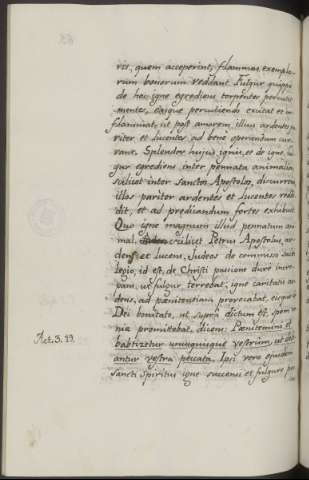 ris, quem acceperint, flammas, exemplo-
rum bonorum reddant. Fulgur quippe
de hoc igne egrediens torpentes percutit
mentes, easque percutiendo excitat et in-
flammat, ut post amorem illius ardentes pa-
riter et lucentes ad bene operandum cur-
rant. Splendor hujus ignis, et de igne, ful-
gur egrediens inter pennata animalia,
scilicet inter sanctos Apostolos, discurrens,
illos pariter ardentes et lucentes red-
dit, et ad prædicandum fortes exhibuit.
Quo igne magnum illud pennatum ani-
mal, scilicet Petrus Apostolus, ar-
dens et lucens, Judæos de commisso sacri-
legio, id est, de Christi passione dure incre-
pans, ut fulgur terrebat; igne caritatis ar-
dens, ad pœnitentiam provocabat, eisque
Dei bonitate, ut supra dictum est,
promittebat, dicens: Pœnitemini et
Act. 3. 19.
baptizetur unusquisque vestrum, ut
antur vestra peccata. Ipsi vero ejusdem
sancti Spiritus igne succensi et fulgure